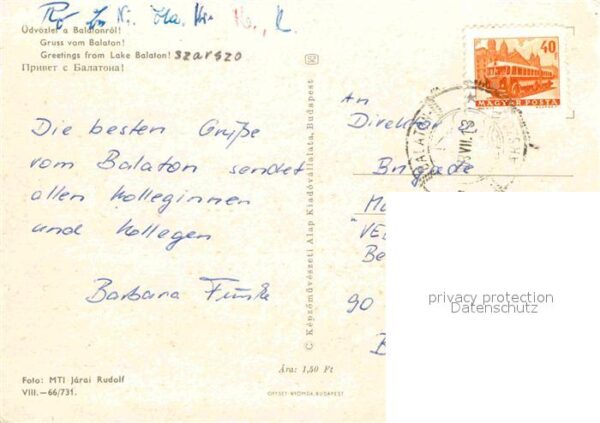 Üdvözlet a Balatonról!
Gruss vom Balaton!
Greetings from Lake Balaton! szarszo
Привет с Балатона!
Die besten Grüße
vom Balaton sendet
allen Kolleginnen
und Kollegen
Barbara Funke
Foto: MTI Járai Rudolf
VIII.—66/731.
© Képzőművészeti Alap Kiadóvállalata, Budapest
Ára: 1,50 Ft
OFFSET-NYOMDA, BUDAPEST
40
MAGYAR POSTA
BALATON
VII. 18
An
Direktor
Brigade
"VE
Be
90
B
privacy protection
Datenschutz